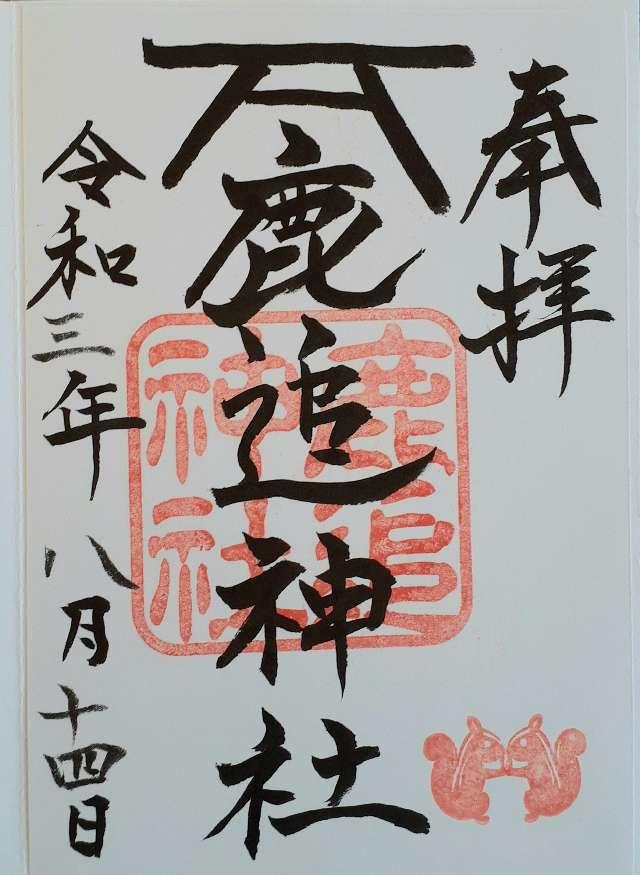 奉拝
鹿追神社
鹿追
神社
令和三年八月十四日